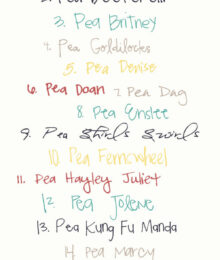 3. Pea Britney
4. Pea Goldilocks
5. Pea Denise
6. Pea Doan 7. Pea Dag
8. Pea Enslee
9. Pea Swirls
10. Pea Fernswheel
11. Pea Hayley Juliet
12 Pea Jolene
13. Pea Kung Fu Manda
14 Pea Marcy